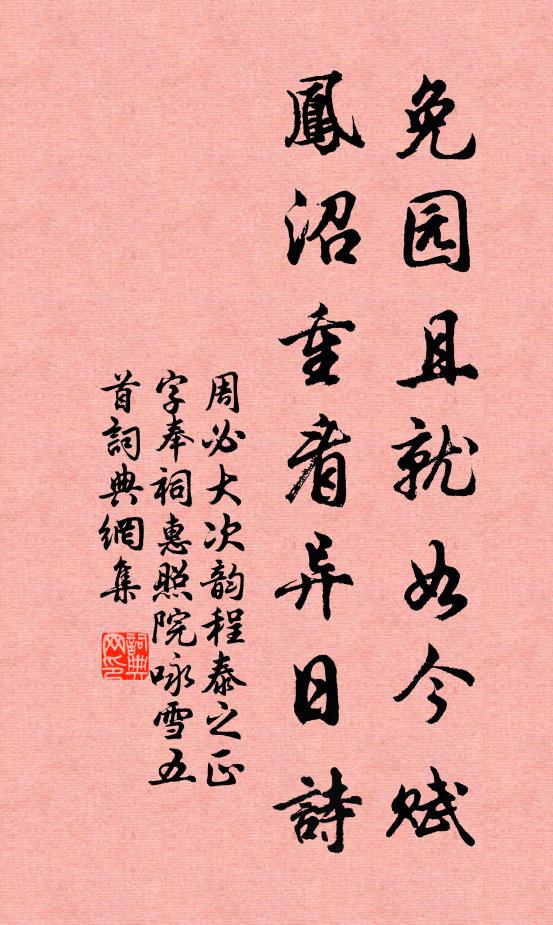 免园且就如今赋
鳳沼重看异日詩
周必大次韵程泰之正
字奉祠惠照院咏雪五
首詞典網集
詞典
网印